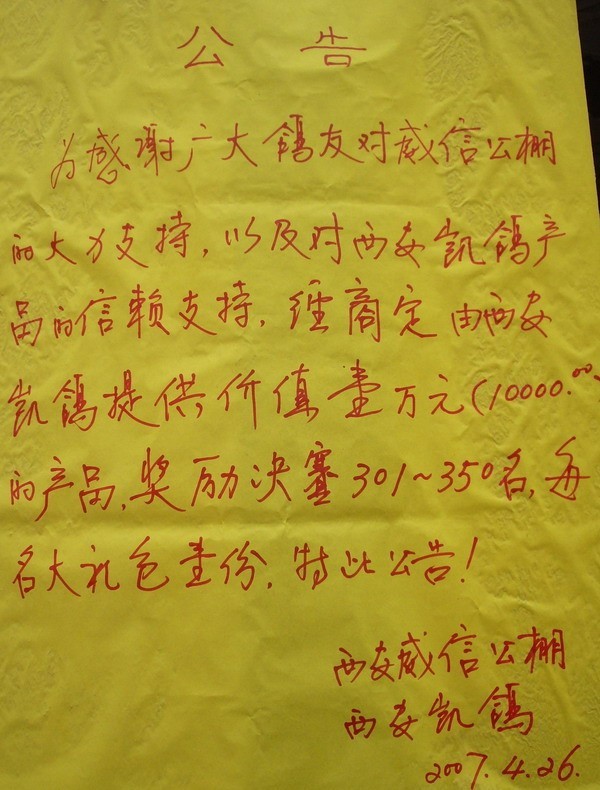 公告
为感谢广大鸽友对威信公棚
的大力支持，以及对西安凯鸽产
品的信赖支持，经商定由西安
凯鸽提供价值壹万元(10000.00
的产品，奖励决赛301~350名，每
名大礼包壹份，特此公告！
西安威信公棚
西安凯鸽
2007.4.26.